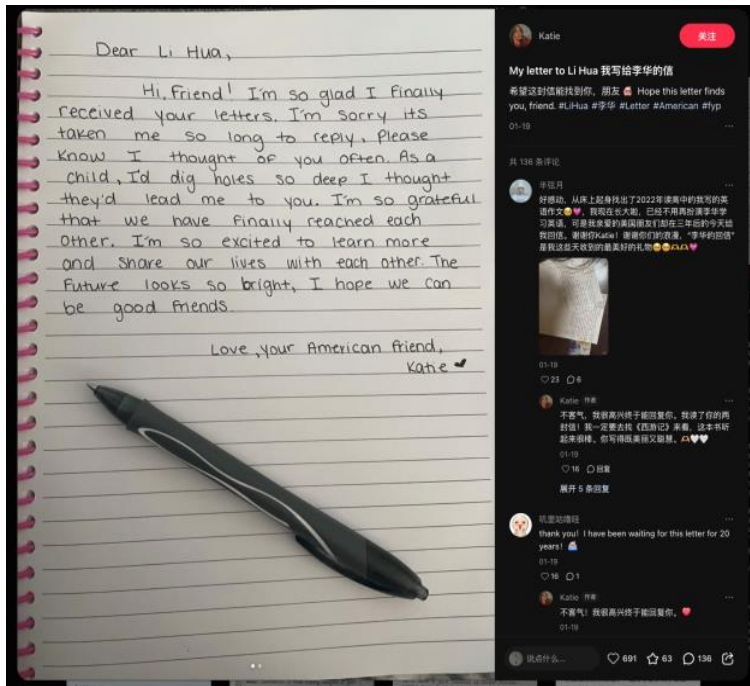 Dear Li Hua,
Hi, friend! I'm so glad I finally
received your letters. I'm sorry its
taken me so long to reply. Please
know I thought of you often. As a
child, I'd dig holes so deep I thought
they'd lead me to you. I'm so grateful
that we have finally reached each
other. I'm so excited to learn more
and share our lives with each other. The
future looks so bright, I hope we can
be good friends.
Love, your American friend,
Katie
Katie
关注
My letter to Li Hua 我写给李华的信
希望这封信能找到你，朋友 Hope this letter finds
you, friend. #LiHua #李华 #Letter #American #fyp
01-19
共 136 条评论
半弦月
好感动，从床上起身找出了2022年读高中的我写的英
语作文，我现在长大啦，已经不用再扮演李华学
习英语，可是我亲爱的美国朋友们却在三年后的今天给
我回信，谢谢你Katie！谢谢你们的浪漫，“李华的回信”
是我这些天收到的最美好的礼物
01-19
23 6
Katie 作者
不客气，我很高兴终于能回复你。我读了你的两
封信！我一定要去找《西游记》来看，这本书听
起来很棒。你写得既美丽又聪慧。
01-19
16 回复
展开 5 条回复
叽里咕噜哇
thank you! I have been waiting for this letter for 20
years!
01-19
16 1
Katie 作者
不客气！我很高兴终于能回复你。
01-19
说点什么...
691 63 136